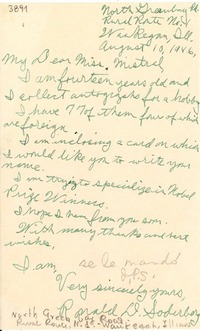 3891
North Greenbay Rd.
Rural Route No. 1
Waukegan, Ill.
August 10, 1946,
My Dear Miss. Mistral,
I am fourteen years old and
I collect autographs for a hobby.
I have 77 of them four of which
are foreign.
I am inclosing a card on which
I would like you to write your
name.
I am trying to specialize in Nobel
Prize Winners.
I hope to hear from you soon.
With many thanks and best
wishes,
I am
se le mandó
Very sincerely yours,
Ronald D. Soderberg
North Green bay Road
Rural Route, N. 1 - Waukegan, Illinois